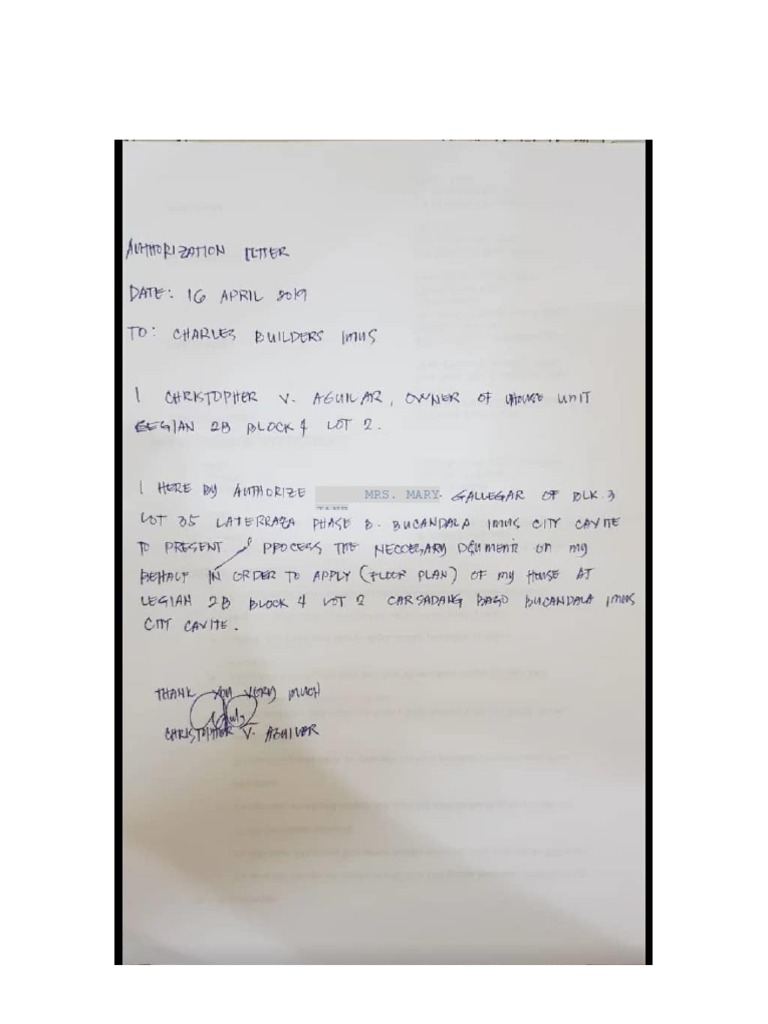 AUTHORIZATION LETTER
DATE: 16 APRIL 2019
TO: CHARLES BUILDERS IMUS
I CHRISTOPHER V. AGUILAR, OWNER OF HOUSE UNIT
LEGIAN 2B BLOCK 4 LOT 2.
I HERE BY AUTHORIZE MRS. MARY GALLEGAR OF BLK. 3
LOT 35 LATERRAZA PHASE B. BUCANDALA IMUS CITY CAVITE
TO PRESENT / PROCESS THE NECCESARY DCUMENT ON MY
BEHALF IN ORDER TO APPLY (FLOOR PLAN) OF MY HOUSE AT
LEGIAN 2B BLOCK 4 LOT 2 CARSADANG BAGO BUCANDALA IMUS
CITY CAVITE.
THANK YOU VERY MUCH
CHRISTOPHER V. AGUILAR